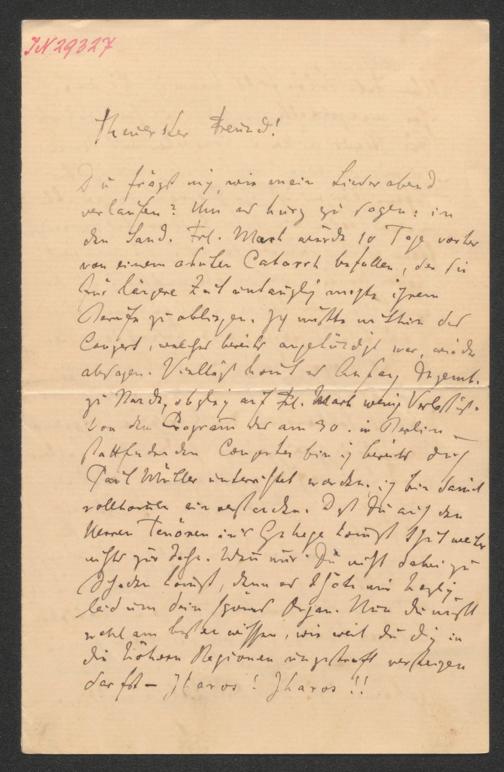 IN 29327
Theuerster Freund!
Du frägst mich, wie mein Liederabend
verlaufen? Um es kurz zu sagen: in
den Sand. Frl. Mark wurde 10 Tage vorher
von einem akuten Catarrh befallen, der sie
für längere Zeit untauglich machte ihrem
Berufe zu obliegen. Ich mußte mithin das
Conzert, welches bereits angekündigt war, wieder
absagen. Vielleicht kommt es Anfang Dezemb.
zu Stande, obgleich auf Frl. Mark wenig Verlaß ist.
Von dem Programm des am 30. in Berlin
stattfindenden Conzertes bin ich bereits durch
Paul Müller unterrichtet worden. Ich bin damit
vollkommen einverstanden. Daß Du auch den
Herren Tenören in's Gehege kommst thut weiter
nichts zur Sache. Wenn nur Du nicht dabei zu
Schaden kommst, denn es thäte mir herzlich
leid um dein schönes Organ. Nun du mußt
wohl am besten wissen, wie weit du dich in
die höhern Regionen ungestraft versteigen
darfst – Ikaros! Ikaros!!